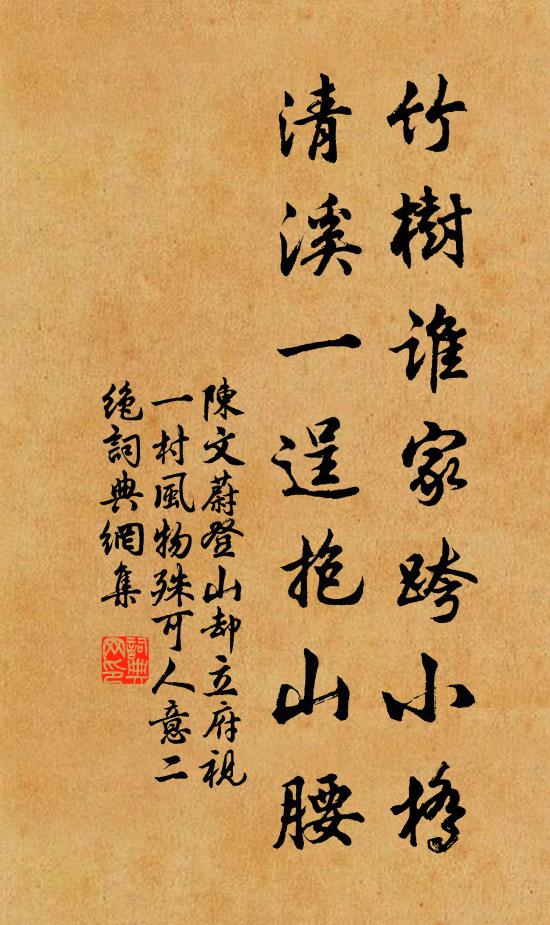 竹樹誰家跨小橋
清溪一逞抱山腰
陳文蔚登山却立府視
一村風物殊可人意二
絶詞典網集
詞典
网印